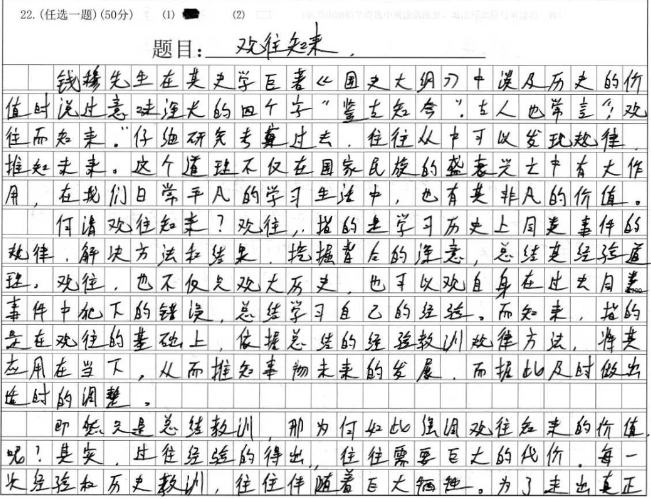 22.(任选一题)(50分) (1) (2)
题目: 观往知来
钱穆先生在其史学巨著《国史大纲》中谈及历史的价
值时说过意味深长的四个字“鉴古知今”。古人也常言“观
往而知来。”仔细研究考算过去,往往从中可以发现规律,
推知未来。这个道理不仅在国家民族的盛衰兴亡中有大作
用,在我们日常平凡的学习生活中,也有其非凡的价值。
何谓观往知来?观往,指的是学习历史上同类事件的
规律,解决方法和结果,挖掘背后的深意,总结其经验道
理。观往,也不仅只观大历史,也可以观自身在过去同类
事件中犯下的错误,总结学习自己的经验。而知来,指的
是在观往的基础上,依据总结的经验教训规律方法,将其
应用在当下,从而推知事物未来的发展,而据此及时做出
适时的调整。
即然只是总结教训,那为何如此强调观往知来的价值
呢?其实,过往经验的得出,往往需要巨大的代价。每一
次经验和历史教训,往往伴随着巨大牺牲。为了走出真正